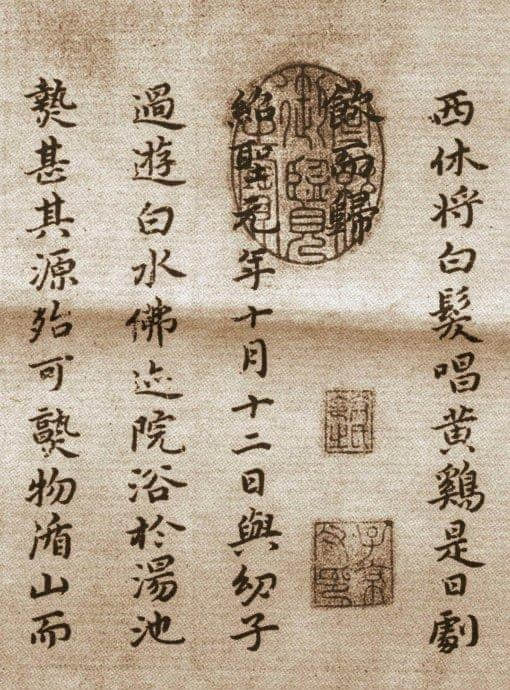 西休将白髮唱黄鷄是日劇
飲而歸
紹聖元年十月十二日與幼子
過遊白水佛迹院浴於湯池
熱甚其源殆可熟物循山而